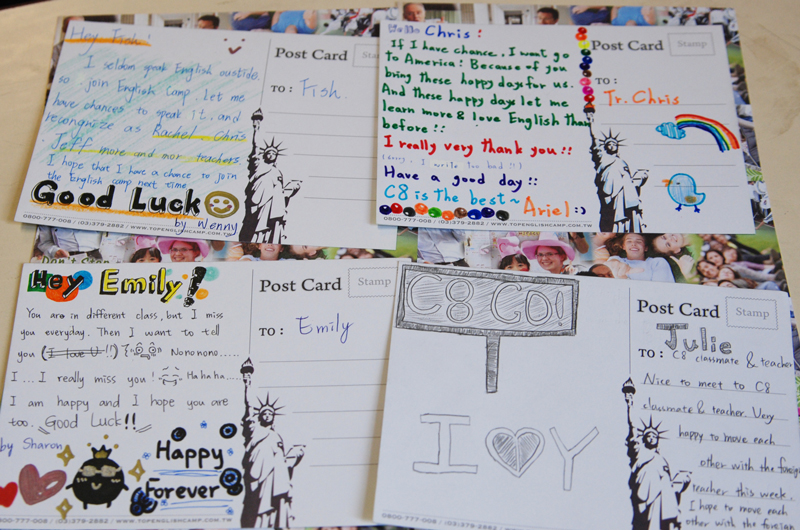 Hey Fish!
I seldom speak English oustide.
so join English Camp. Let me
have chances to speak it. and
recongnize as Rachel. Chris
Jeff more and mor teachers.
I hope that I have a chance to join
the English camp next time
Good Luck
by Wenny
Post Card
Stamp
TO: Fish.
0800-777-008 / (03)379-2882 / WWW.TOPENGLISHCAMP.COM.TW
Hello Chris!
If I have chance. I want go
to America! Because of you
bring these happy days for us.
And these happy days let me
learn more & love English than
before!!
I really very thank you!!
(Sorry. I write too bad!!)
Have a good day!!
C8 is the best~
Ariel :)
Post Card
Stamp
TO:
Tr. Chris
0800-777-008 / (03)379-2882 / WWW.TOPENGLISHCAMP.COM.TW
Don't Stop
Hey Emily!
You are in different class, but I miss
you everyday. Then I want to tell
you (I love U!!) Nonono.....
I ... I really miss you! Hahaha....
I am happy and I hope you are
too. Good Luck!!
by Sharon
Happy
Forever
Post Card
Stamp
TO: Emily
0800-777-008 / (03)379-2882 / WWW.TOPENGLISHCAMP.COM.TW
C8 GO!
I Y
Post Card
Stamp
Julie
TO: C8 classmate & teacher
Nice to meet to C8
classmate & teacher. Very
happy to move each
other with the foreign
teacher this week.
I hope to move each
other with the foreign
0800-777-008 / (03)379-2882 / WWW.TOPENGLISHCAMP.COM.TW